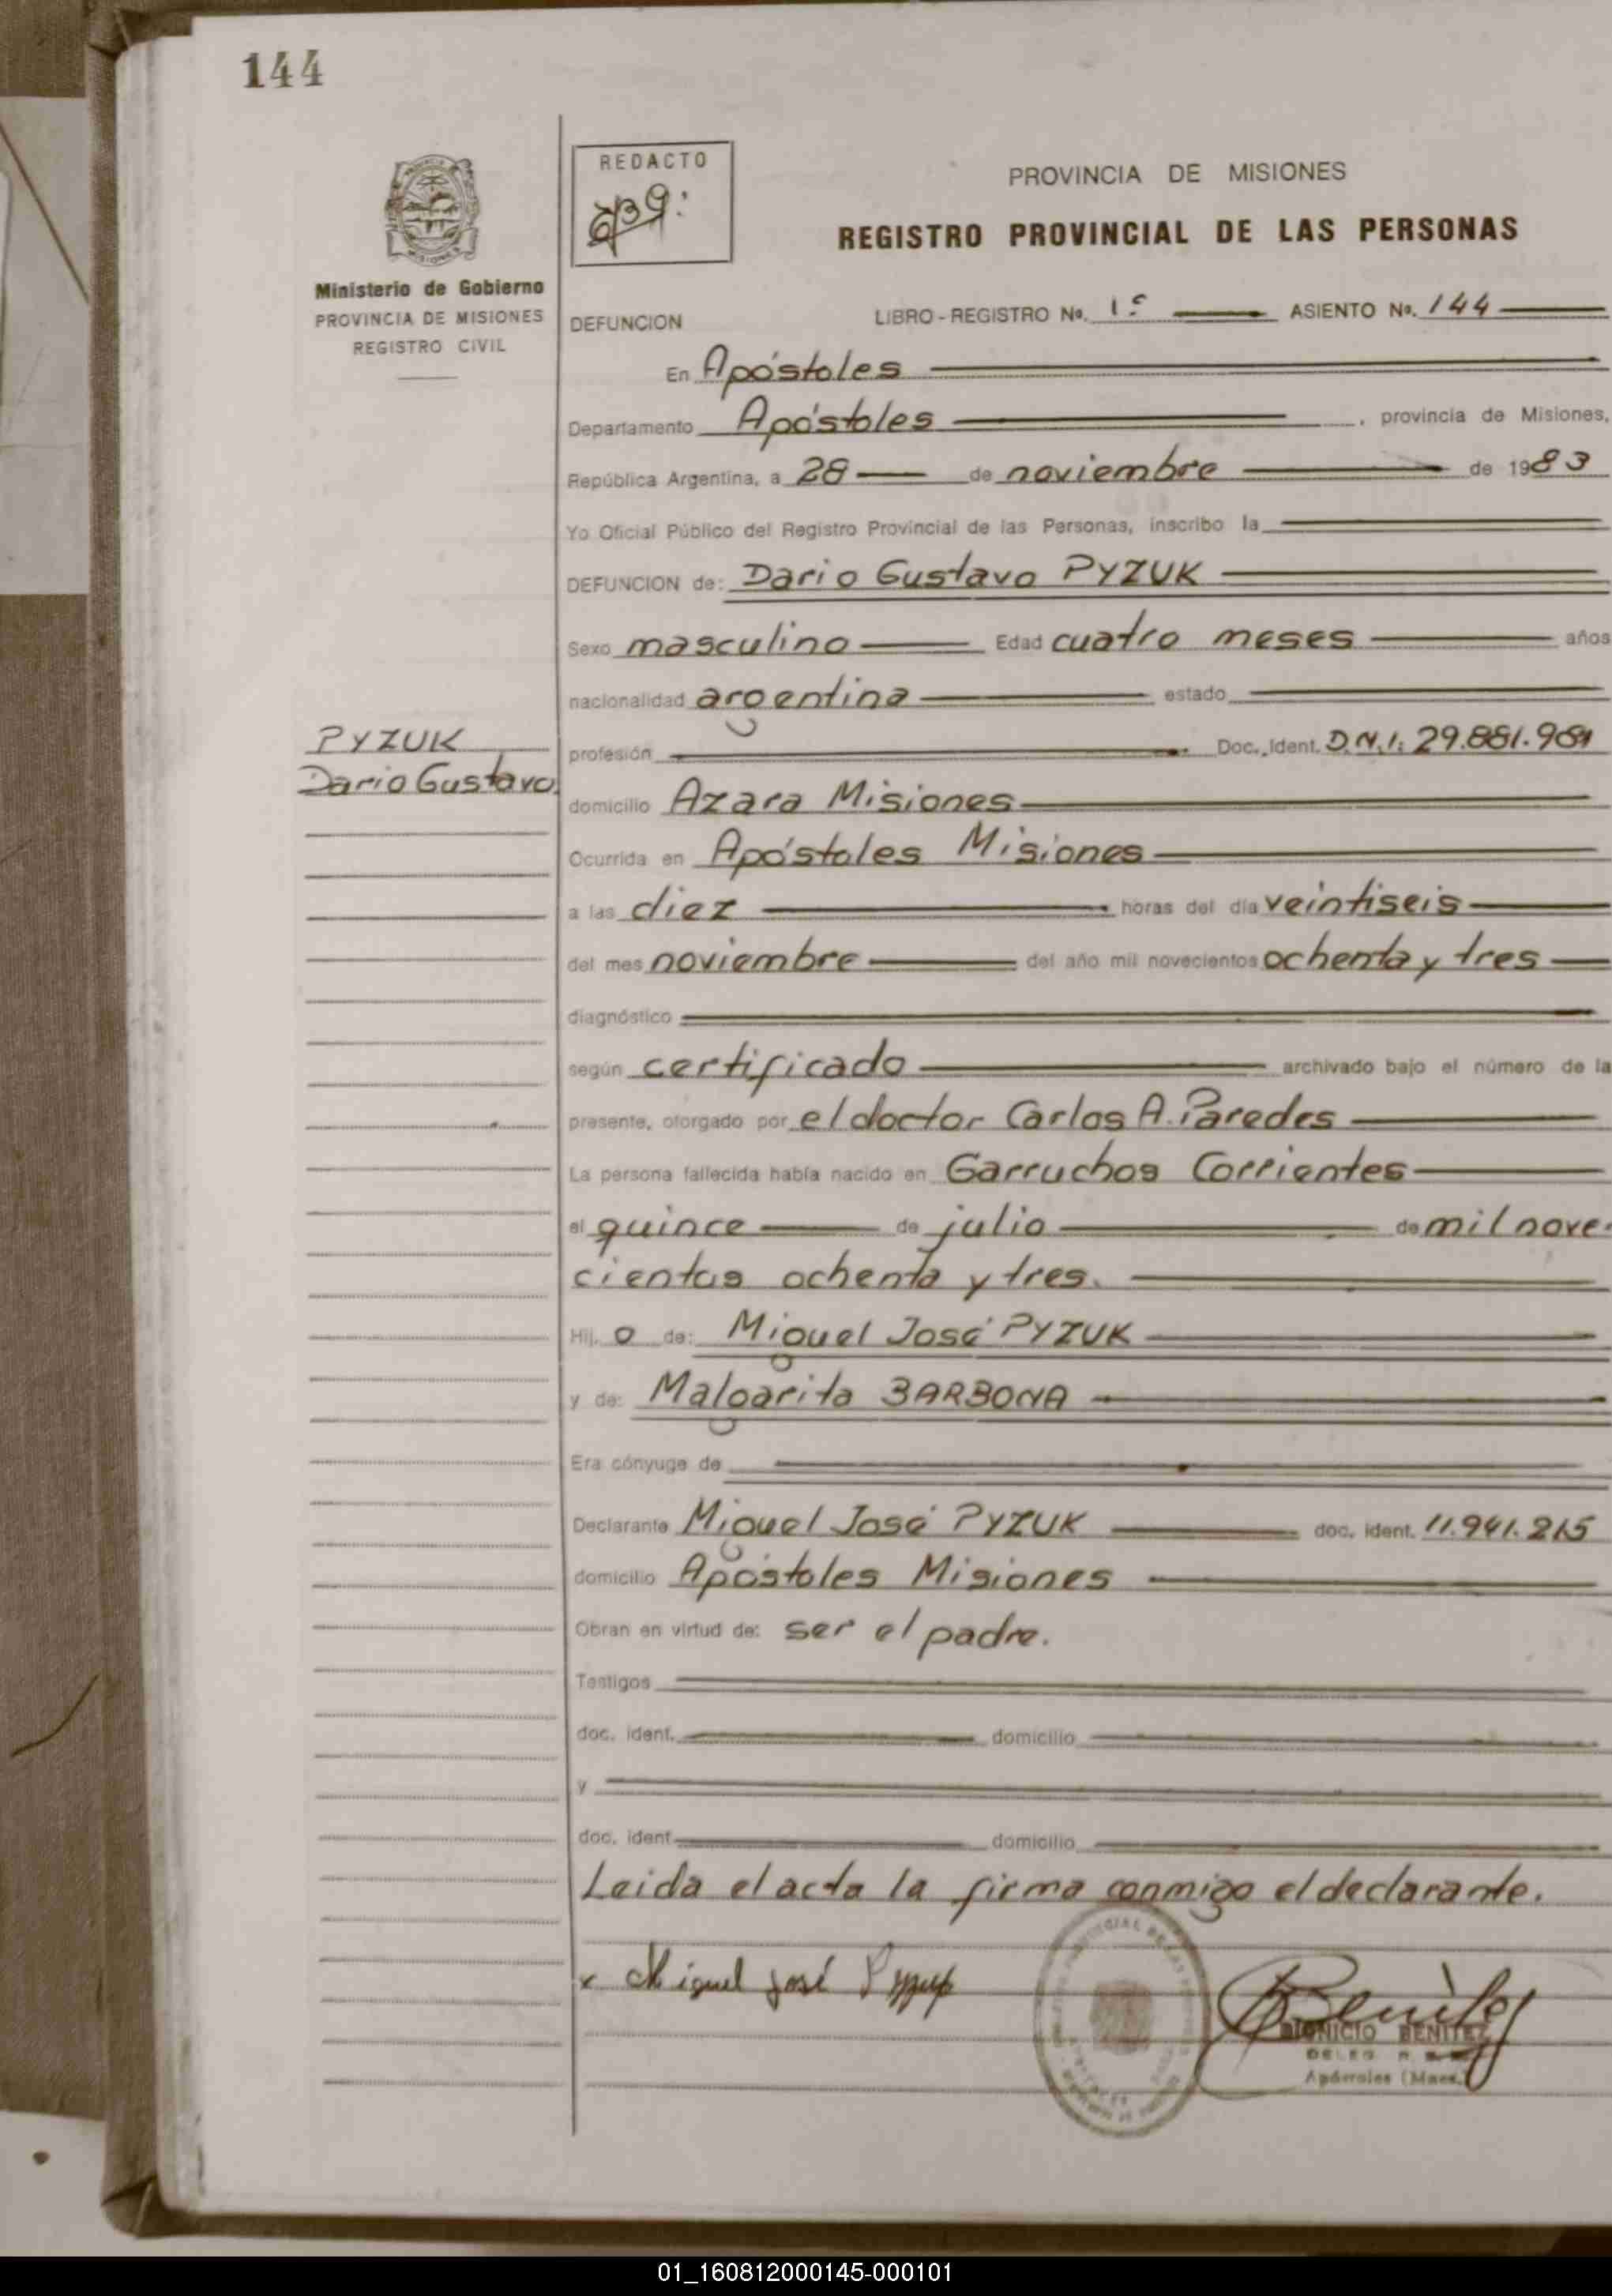 144
REDACTO
PROVINCIA DE MISIONES
REGISTRO PROVINCIAL DE LAS PERSONAS
Ministerio de Gobierno
PROVINCIA DE MISIONES
REGISTRO CIVIL
DEFUNCION LIBRO - REGISTRO No. 1º ASIENTO No. 144
En Apóstoles
Departamento Apóstoles, provincia de Misiones,
República Argentina, a 28 de noviembre de 1983
Yo Oficial Público del Registro Provincial de las Personas, inscribo la
DEFUNCION de: Dario Gustavo PYZUK
Sexo masculino Edad cuatro meses años
nacionalidad argentina estado
PYZUK
Dario Gustavo
profesión Doc. Ident. D.N.I: 29.881.981
domicilio Azara Misiones
Ocurrida en Apóstoles Misiones
a las diez horas del día veintiseis
del mes noviembre del año mil novecientos ochenta y tres
diagnóstico
según certificado archivado bajo el número de la
presente, otorgado por el doctor Carlos A. Paredes
La persona fallecida había nacido en Garruchos Corrientes
el quince de julio de mil nove-
cientos ochenta y tres.
Hij o de: Miguel José PYZUK
y de: Malgarita BARBONA
Era cónyuge de
Declarante Miguel José PYZUK doc. ident. 11.941.215
domicilio Apóstoles Misiones
Obran en virtud de: ser el padre.
Testigos
doc. ident. domicilio
y
doc. ident. domicilio
Leida el acta la firma conmigo el declarante.
x Miguel José Pyzuk
Benitez
DIONICIO BENITEZ
DELEG
Apóstoles (Mnes.)
01_160812000145-000101